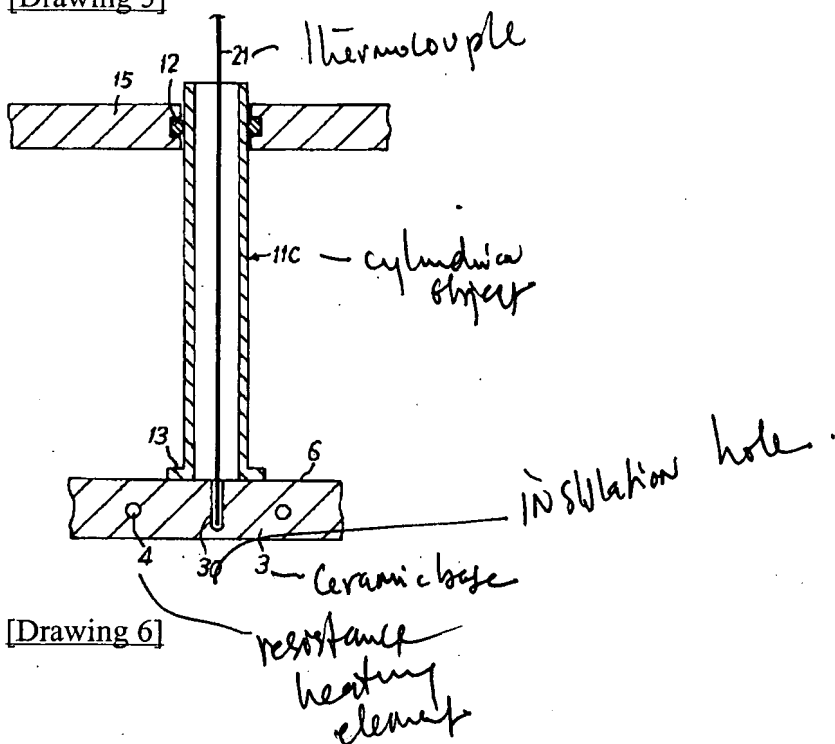 [Drawing 5]
21 thermocouple
12
15
11C cylindrical
object
13
6
insulation hole.
4
30
3 Ceramic base
[Drawing 6]
resistance
heating
element